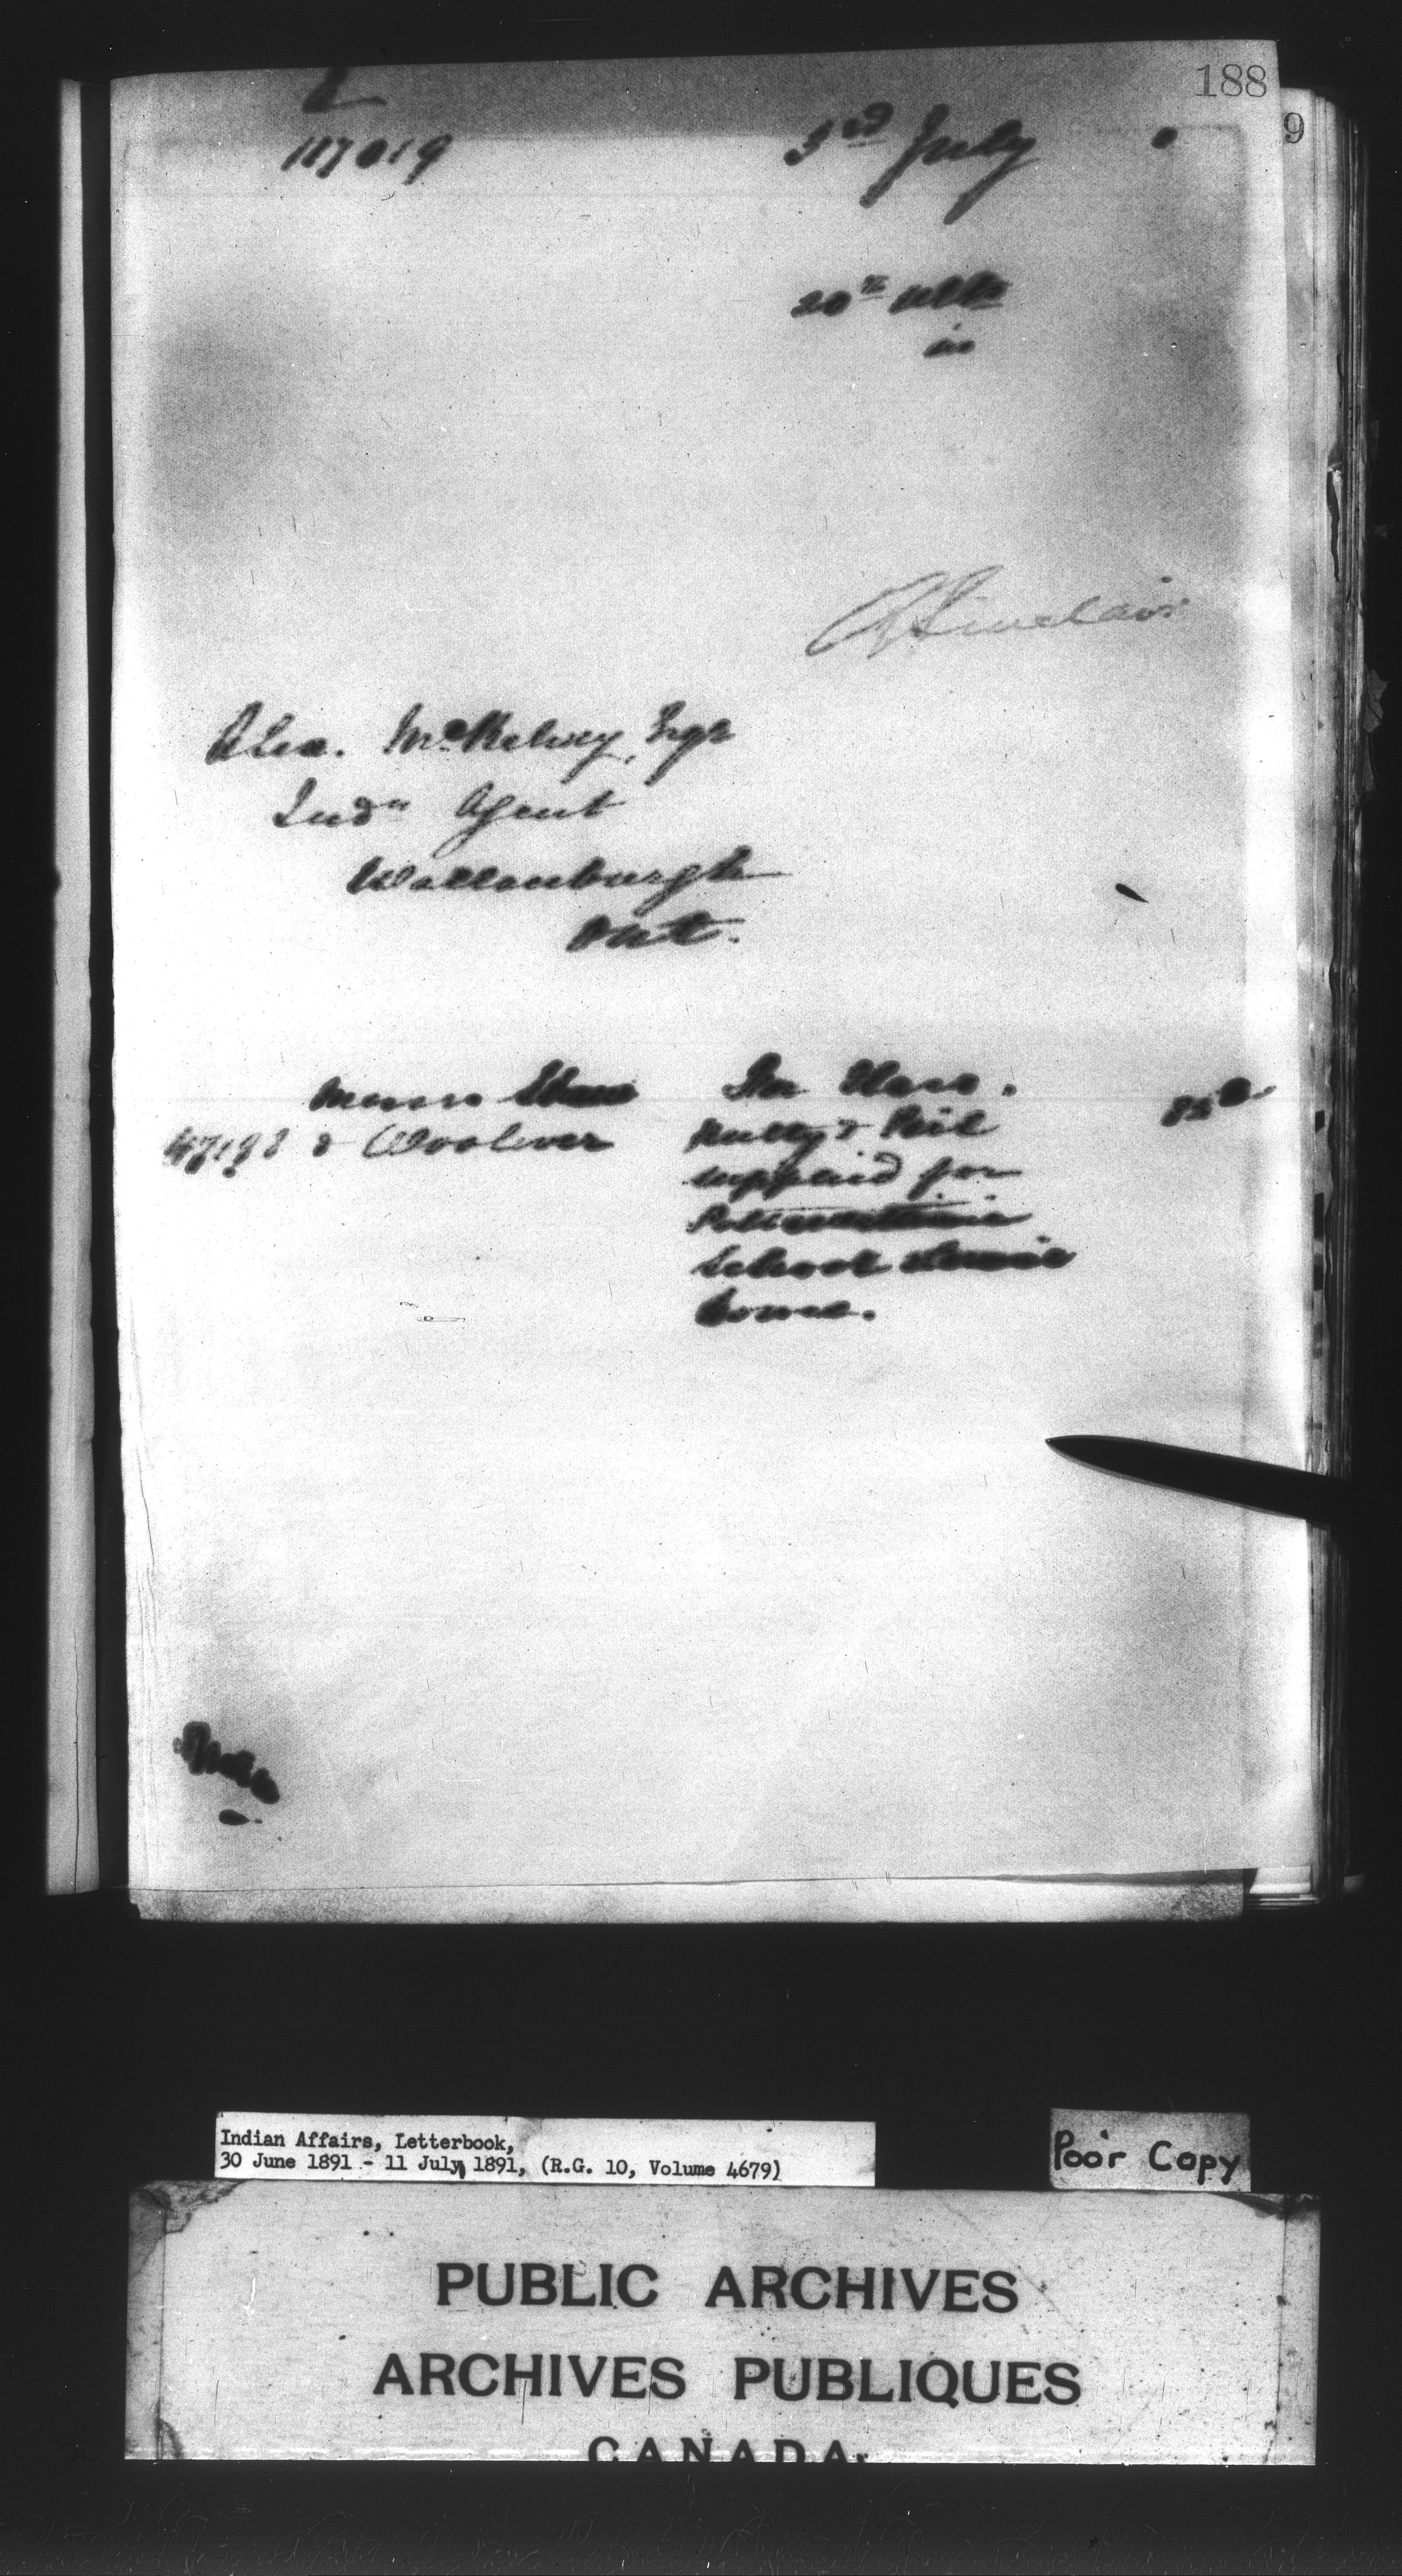 188
9
L
117019
3rd July
20th ulto
in
A Sinclair
Alex. McKelvey, Esqr
Indn Agent
Wallaceburgh
Ont.
Messrs Shaw
& Woollver
For Glass.
Putty & Oil
supplied for
School
house.
Indian Affairs, Letterbook,
30 June 1891 - 11 July, 1891, (R.G. 10, Volume 4679)
Poor Copy
PUBLIC ARCHIVES
ARCHIVES PUBLIQUES
CANADA